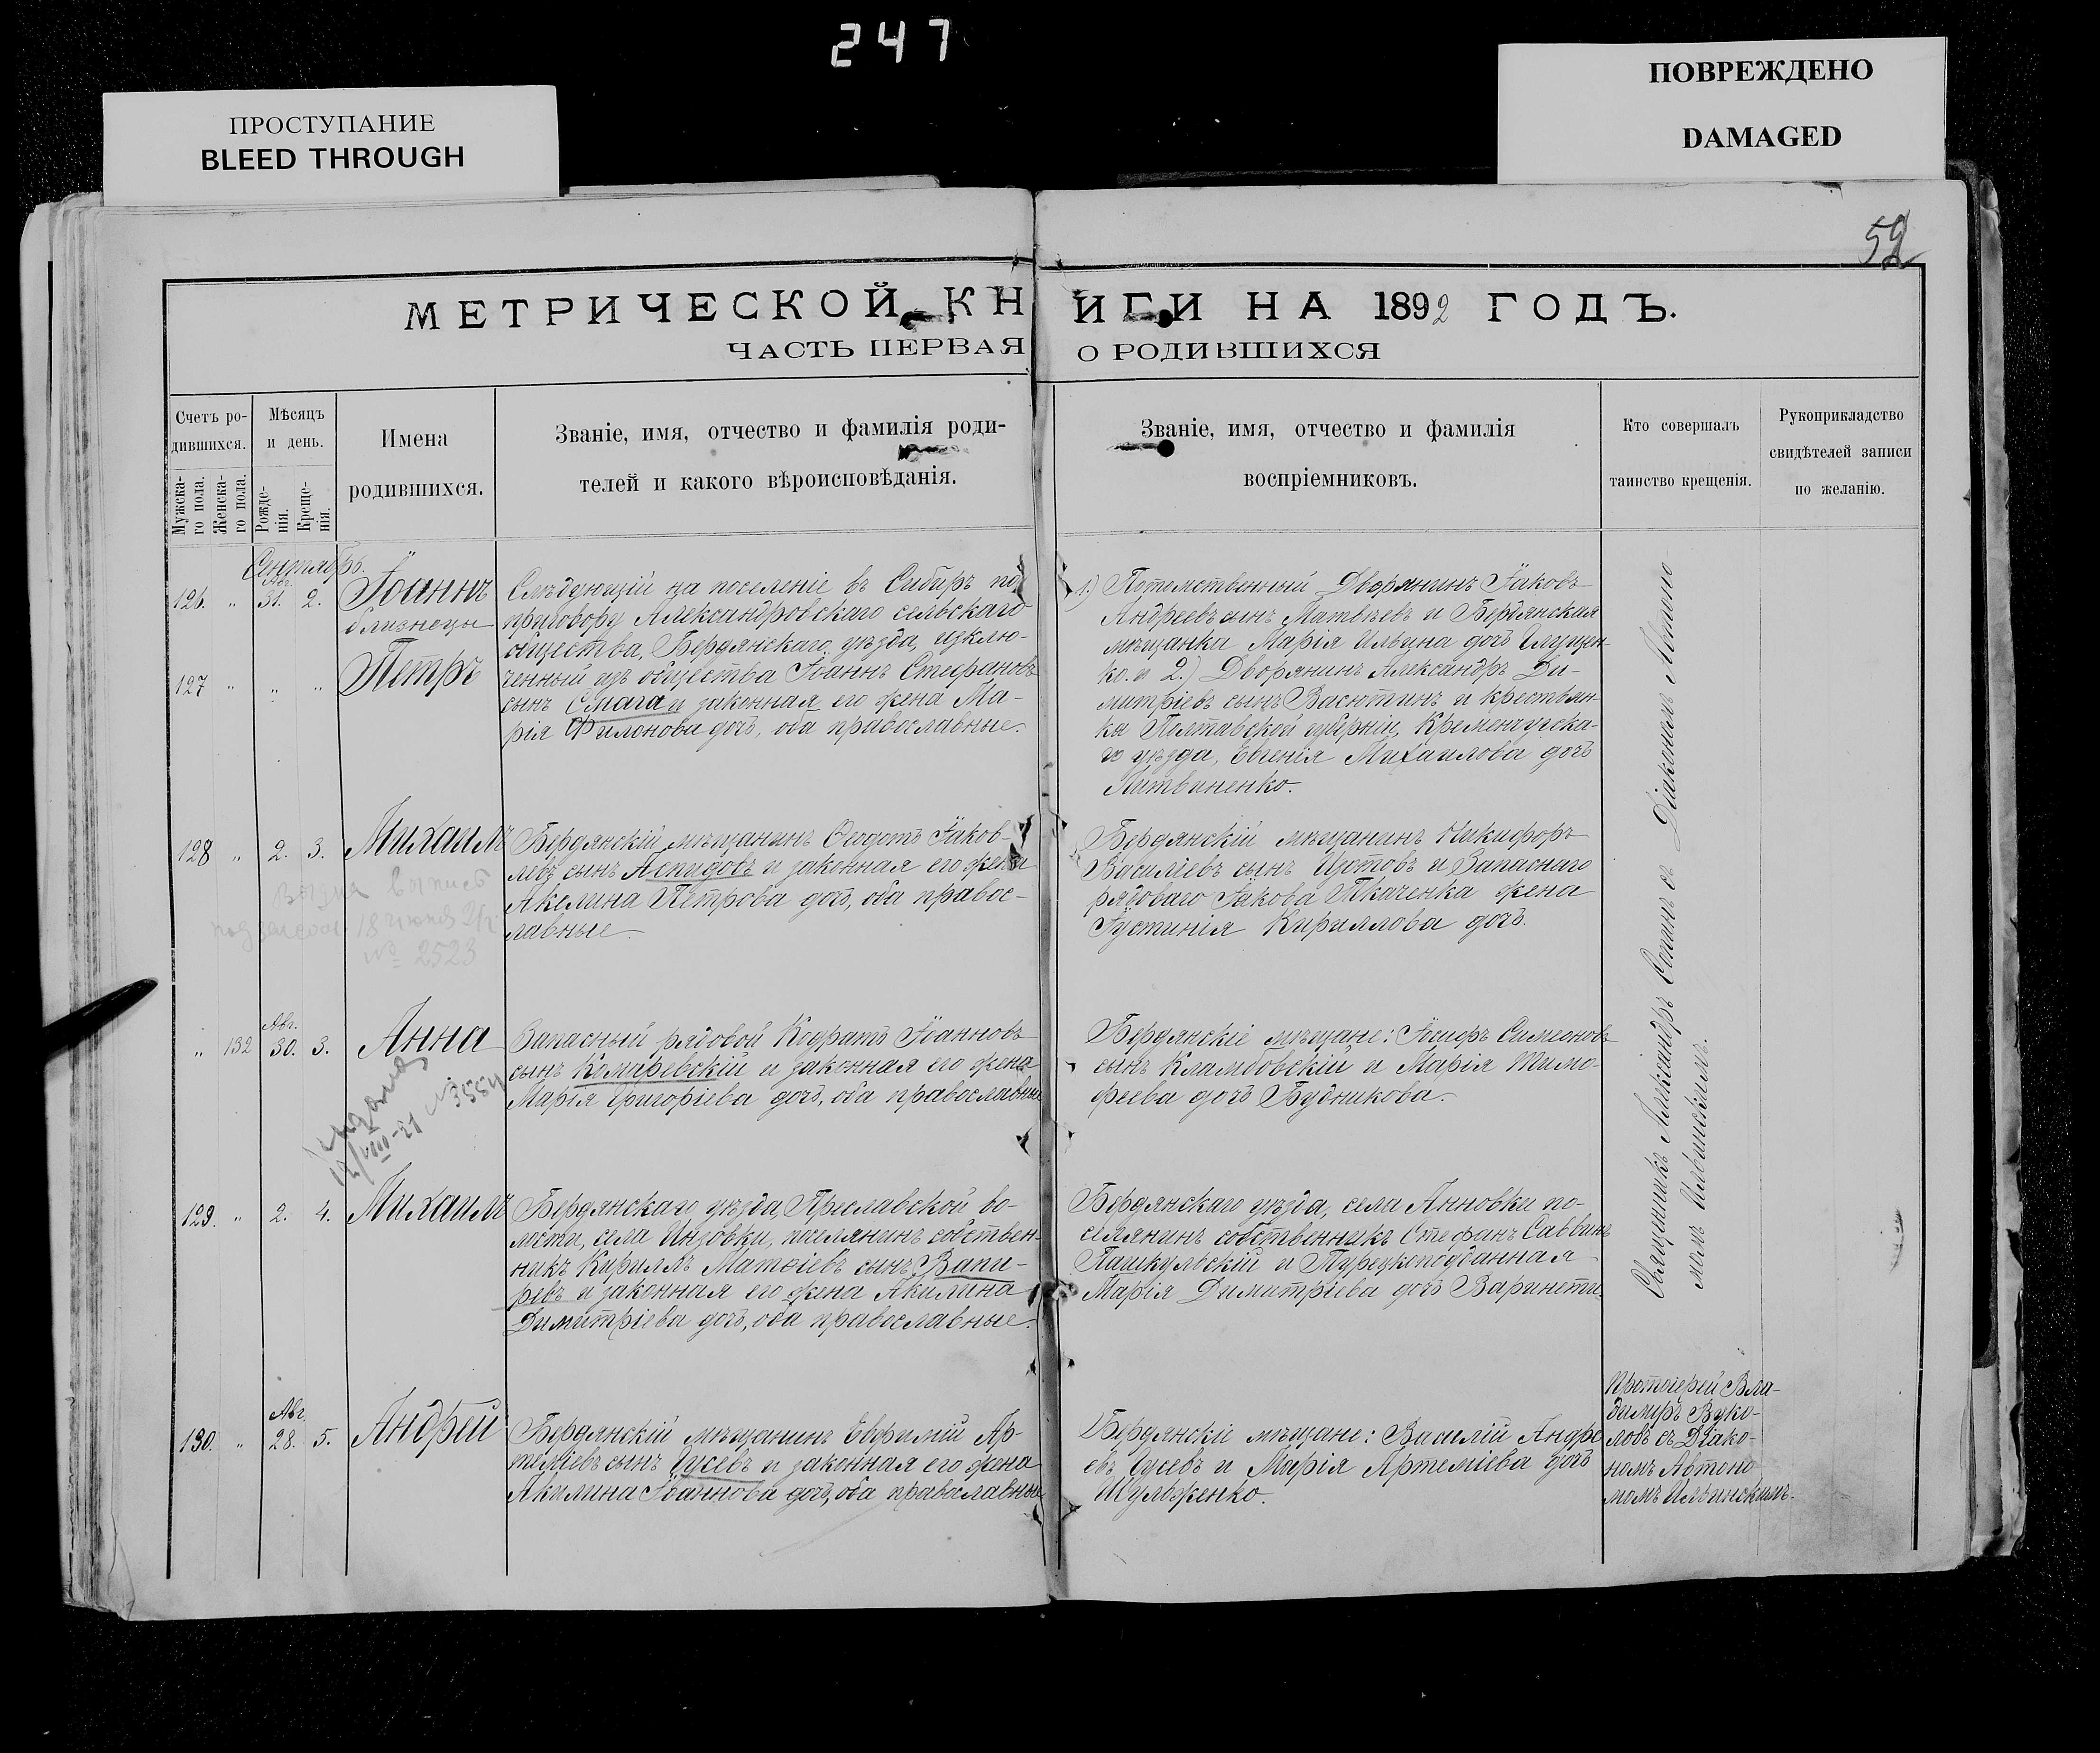 247
ПРОСТУПАНИЕ
BLEED THROUGH
ПОВРЕЖДЕНО
DAMAGED
52
МЕТРИЧЕСКОЙ КНИГИ НА 1892 ГОДЪ.
ЧАСТЬ ПЕРВАЯ О РОДИВШИХСЯ
Счетъ ро-
дившихся.
Мужска-
го пола.
Женска-
го пола.
Мѣсяцъ
и день.
Рожде-
нія.
Креще-
нія.
Имена
родившихся.
Званіе, имя, отчество и фамилія роди-
телей и какого вѣроисповѣданія.
Званіе, имя, отчество и фамилія
воспріемниковъ.
Кто совершалъ
таинство крещенія.
Рукоприкладство
свидѣтелей записи
по желанію.
Сентябрь.
Авг.
126. " 31. 2. Іоаннъ
близнецы
127 " " " Петръ
Слѣдующій на поселеніе въ Сибирь по
приговору Александровскаго сельскаго
общества, Бердянскаго уѣзда, исклю-
ченный изъ общества Іоаннъ Стефановъ
сынъ Смага и законная его жена Ма-
рія Филонова дочь, оба православные.
1.) Потомственный Дворянинъ Іаковъ
Андреевъ сынъ Матвѣевъ и Бердянская
мѣщанка Марія Ильина дочь Глущен-
ко. и 2.) Дворянинъ Александръ Ди-
митріевъ сынъ Васютинъ и крестьян-
ка Полтавской губерніи, Кременчугска-
го уѣзда, Евгенія Михаилова дочь
Литвиненко.
128 " 2. 3. Михаилъ
Бердянскій мѣщанинъ Ѳеодотъ Іаков-
левъ сынъ Аспидовъ и законная его жена
Акелина Петрова дочь, оба правос-
лавные
Бердянскій мѣщанинъ Никифоръ
Василіевъ сынъ Изотовъ и Запаснаго
рядоваго Іакова Ткаченка жена
Іустинія Кириллова дочь.
выпись
18
№ 2523
Авг.
" 132 30. 3. Анна
Запасный рядовой Кодратъ Іоанновъ
сынъ Комаревскій и законная его жена
Марія Григоріева дочь, оба православные
Бердянскіе мѣщане: Іосифъ Симеоновъ
сынъ Кламбовскій и Марія Тимо-
феева дочь Будникова.
VIII-21 № 3554
129. " 2. 4. Михаилъ
Бердянскаго уѣзда, Преславской во-
лости, села Инзовки, поселянинъ собствен-
никъ Кириллъ Матѳіевъ сынъ Вапи-
ревъ и законная его жена Акилина
Димитріева дочь, оба православные.
Бердянскаго уѣзда, села Анновки по-
селянинъ собственникъ Стефанъ Саввинъ
Пашкульскій и Турецкоподданная
Марія Димитріева дочь Варинети.
Священникъ Александръ съ Діакономъ
Авг.
130. " 28. 5. Андрей
Бердянскій мѣщанинъ Евфимій Ар-
теміевъ сынъ Гусевъ и законная его жена
Акилина Іоаннова дочь, оба православные
Бердянскіе мѣщане: Василій Андре
евъ Гусевъ и Марія Артеміева дочь
Шульженко.
Протоіерей Вла-
диміръ Вуко-
ловъ съ Діако-
номъ Автоно
момъ Ильинскимъ.